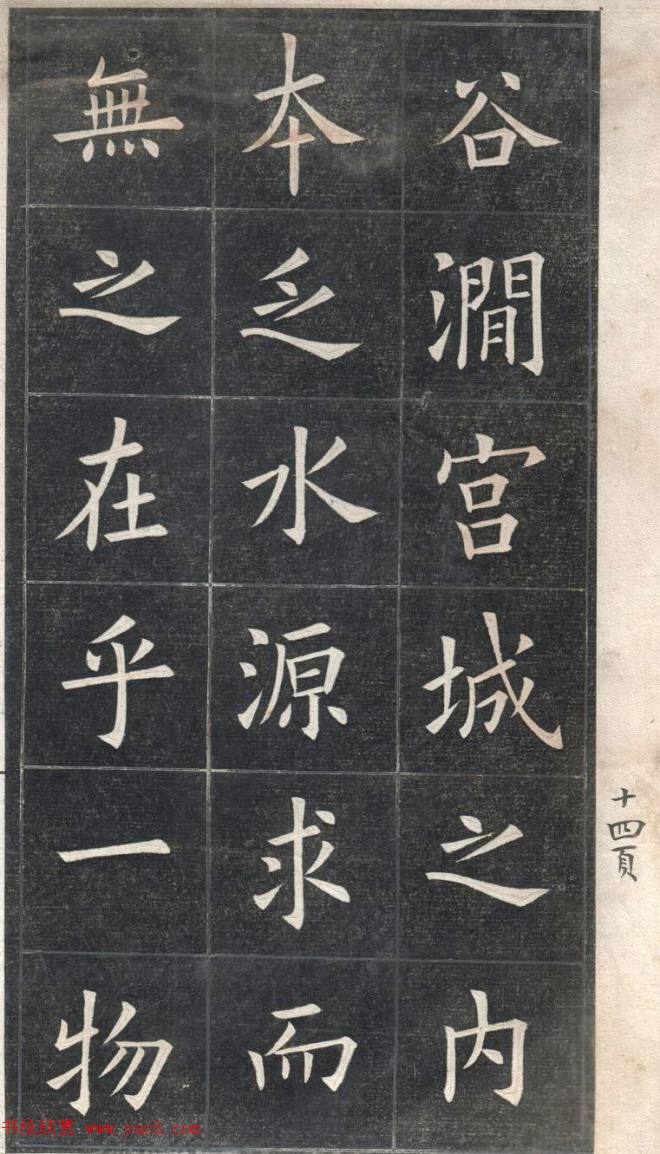 谷澗宫城之内
本乏水源求而
無之在乎一物
十四頁
书法欣赏 www.yac8.com